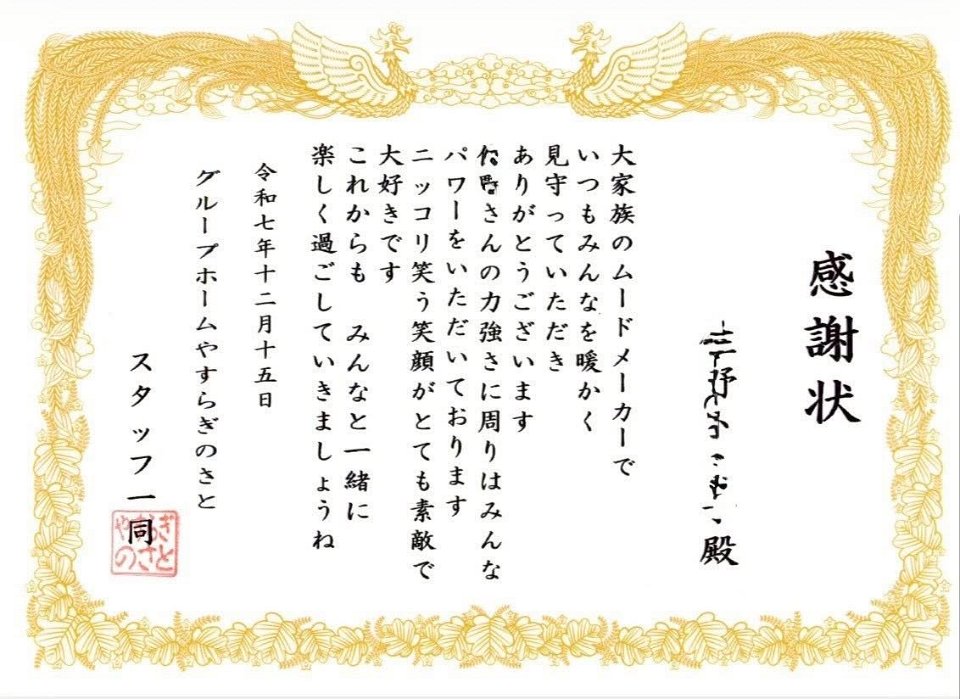 感謝状
殿
大家族のムードメーカーで
いつもみんなを暖かく
見守っていただき
ありがとうございます
さんの力強さに周りはみんな
パワーをいただいております
ニッコリ笑う笑顔がとても素敵で
大好きです
これからも みんなと一緒に
楽しく過ごしていきましょうね
令和七年十二月十五日
グループホームやすらぎのさと
スタッフ一同